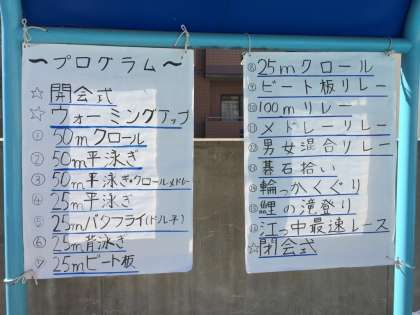 〜プログラム〜
☆開会式
☆ウォーミングアップ
① 50mクロール
② 50m平泳ぎ
③ 50m平泳ぎ・クロールメドレー
④ 25m平泳ぎ
⑤ 25mバタフライ(ドル平)
⑥ 25m背泳ぎ
⑦ 25mビート板
⑧ 25mクロール
⑨ ビート板リレー
⑩ 100mリレー
⑪ メドレーリレー
⑫ 男女混合リレー
⑬ 碁石拾い
⑭ 輪っかくぐり
⑮ 鯉の滝登り
⑯ 江っ中最速レース
☆閉会式